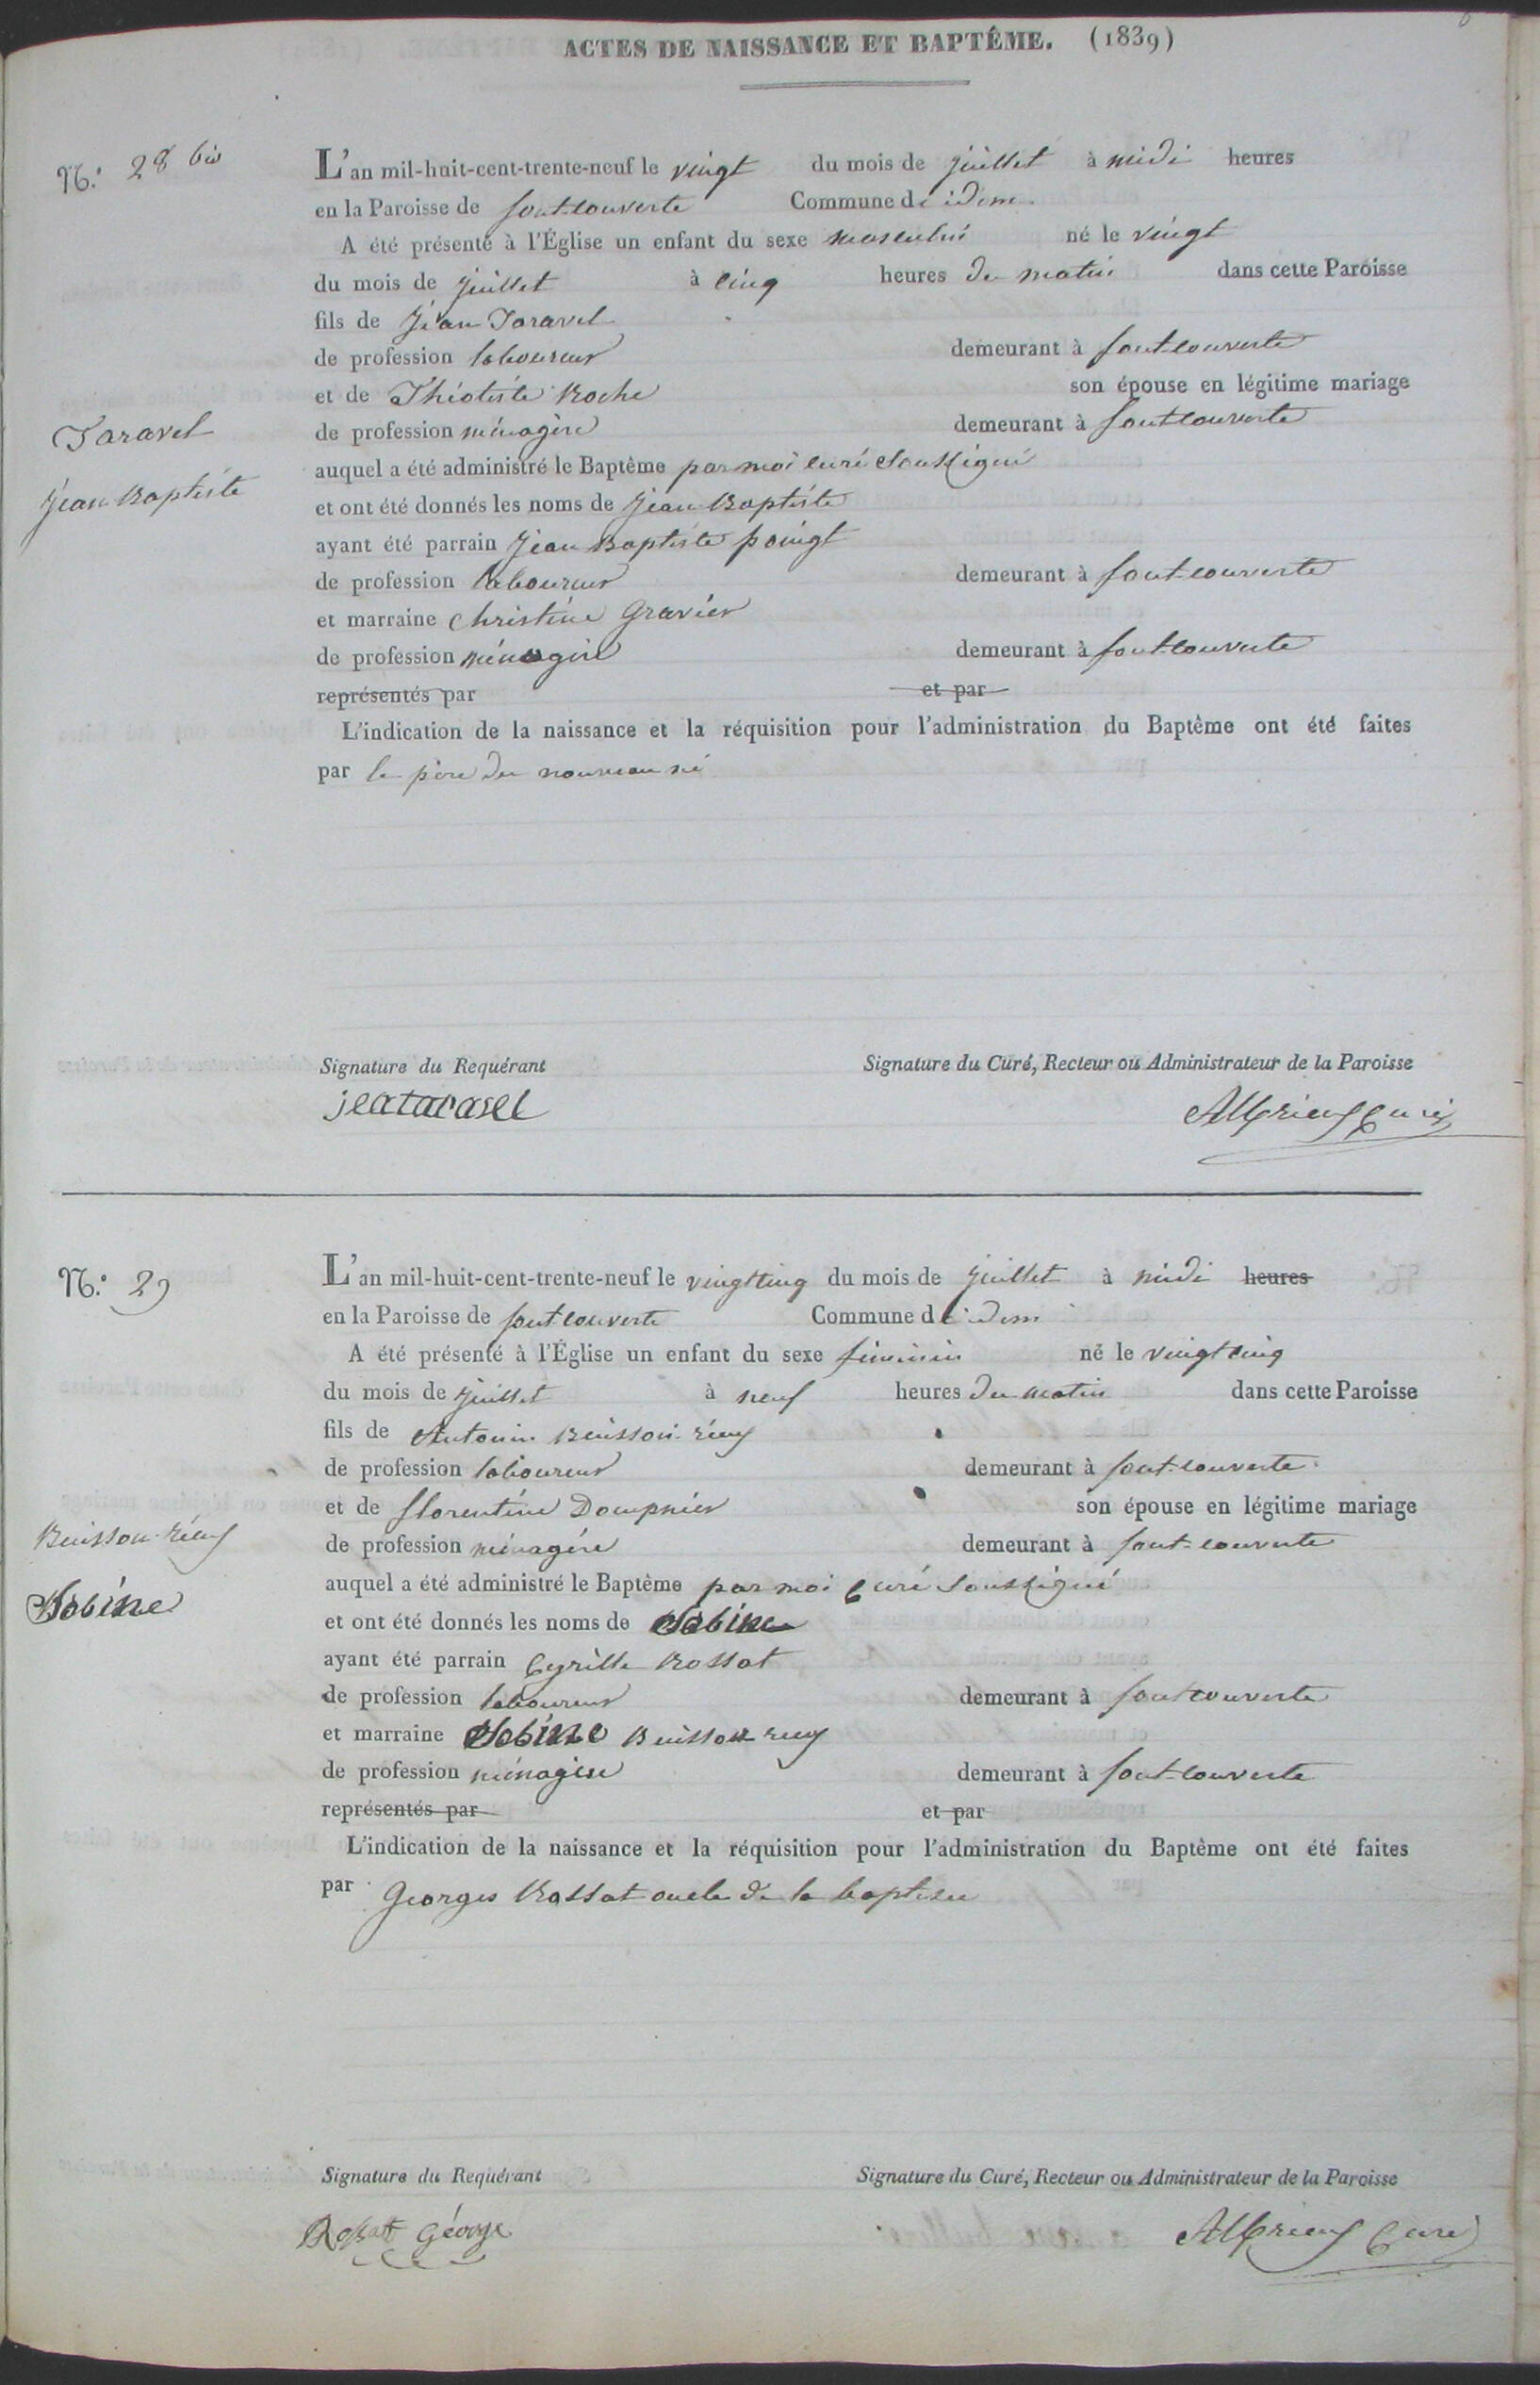 ACTES DE NAISSANCE ET BAPTÊME. (1839)
N.º 28 bis
L'an mil-huit-cent-trente-neuf le vingt du mois de juillet à midi heures
en la Paroisse de fontcouverte Commune de idem
A été présenté à l'Église un enfant du sexe masculin né le vingt
du mois de juillet à cinq heures du matin dans cette Paroisse
fils de Jean Taravel
de profession laboureur demeurant à fontcouverte
et de Théotiste Roche son épouse en légitime mariage
Taravel
de profession ménagère demeurant à fontcouverte
auquel a été administré le Baptême par moi curé soussigné
Jean Baptiste
et ont été donnés les noms de Jean Baptiste
ayant été parrain Jean Baptiste poingt
de profession laboureur demeurant à fontcouverte
et marraine christine gravier
de profession ménagère demeurant à fontcouverte
représentés par et par
L'indication de la naissance et la réquisition pour l'administration du Baptême ont été faites
par le père du nouveau né
Signature du Requérant Signature du Curé, Recteur ou Administrateur de la Paroisse
curé
N.º 29
L'an mil-huit-cent-trente-neuf le vingt cinq du mois de juillet à midi heures
en la Paroisse de fontcouverte Commune de idem
A été présenté à l'Église un enfant du sexe féminin né le vingt cinq
du mois de juillet à neuf heures du matin dans cette Paroisse
fils de Antonin Buisson-rieux
de profession laboureur demeurant à font-couverte
et de florentine Dompnier son épouse en légitime mariage
Buisson-rieux
de profession ménagère demeurant à font-couverte
auquel a été administré le Baptême par moi curé soussigné
Sabine
et ont été donnés les noms de Sabine
ayant été parrain Cyrille Rossat
de profession laboureur demeurant à fontcouverte
et marraine Sabine Buisson rieux
de profession ménagère demeurant à font-couverte
représentés par et par
L'indication de la naissance et la réquisition pour l'administration du Baptême ont été faites
par Georges Rossat oncle de la baptisée
Signature du Requérant Signature du Curé, Recteur ou Administrateur de la Paroisse
Rossat George curé